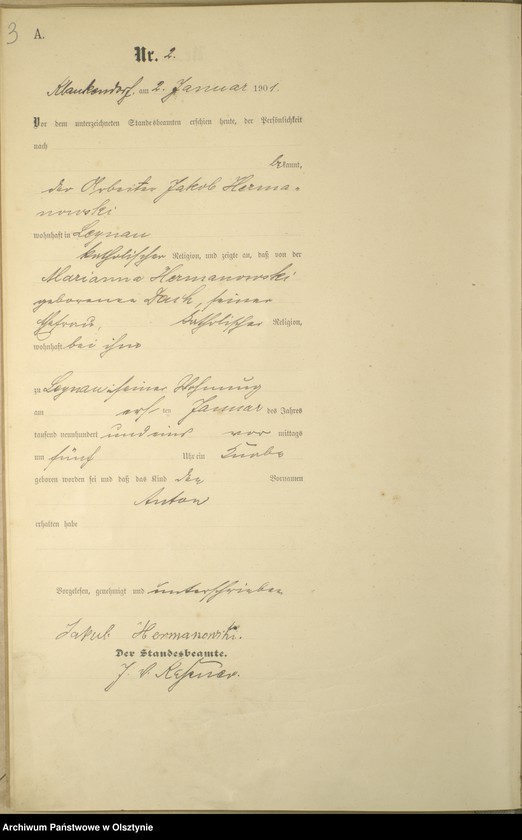 3 A.
Nr. 2.
Klaukendorf, am 2. Januar 1901.
Vor dem unterzeichneten Standesbeamten erschien heute, der Persönlichkeit
nach
bekannt,
der Arbeiter Jakob Herma-
nowski
wohnhaft in Legnau
katholischer Religion, und zeigte an, daß von der
Marianna Hermanowski
geborenen, seiner
Ehefrau, katholischer Religion,
wohnhaft bei ihm
zu Legnau in seiner Wohnung
am ersten Januar des Jahres
tausend neunhundert und eins vor mittags
um fünf Uhr ein Knabe
geboren worden sei und daß das Kind den Vornamen
Anton
erhalten habe
Vorgelesen, genehmigt und unterschrieben
Jakob Hermanowski.
Der Standesbeamte.
J. V.
Archiwum Państwowe w Olsztynie